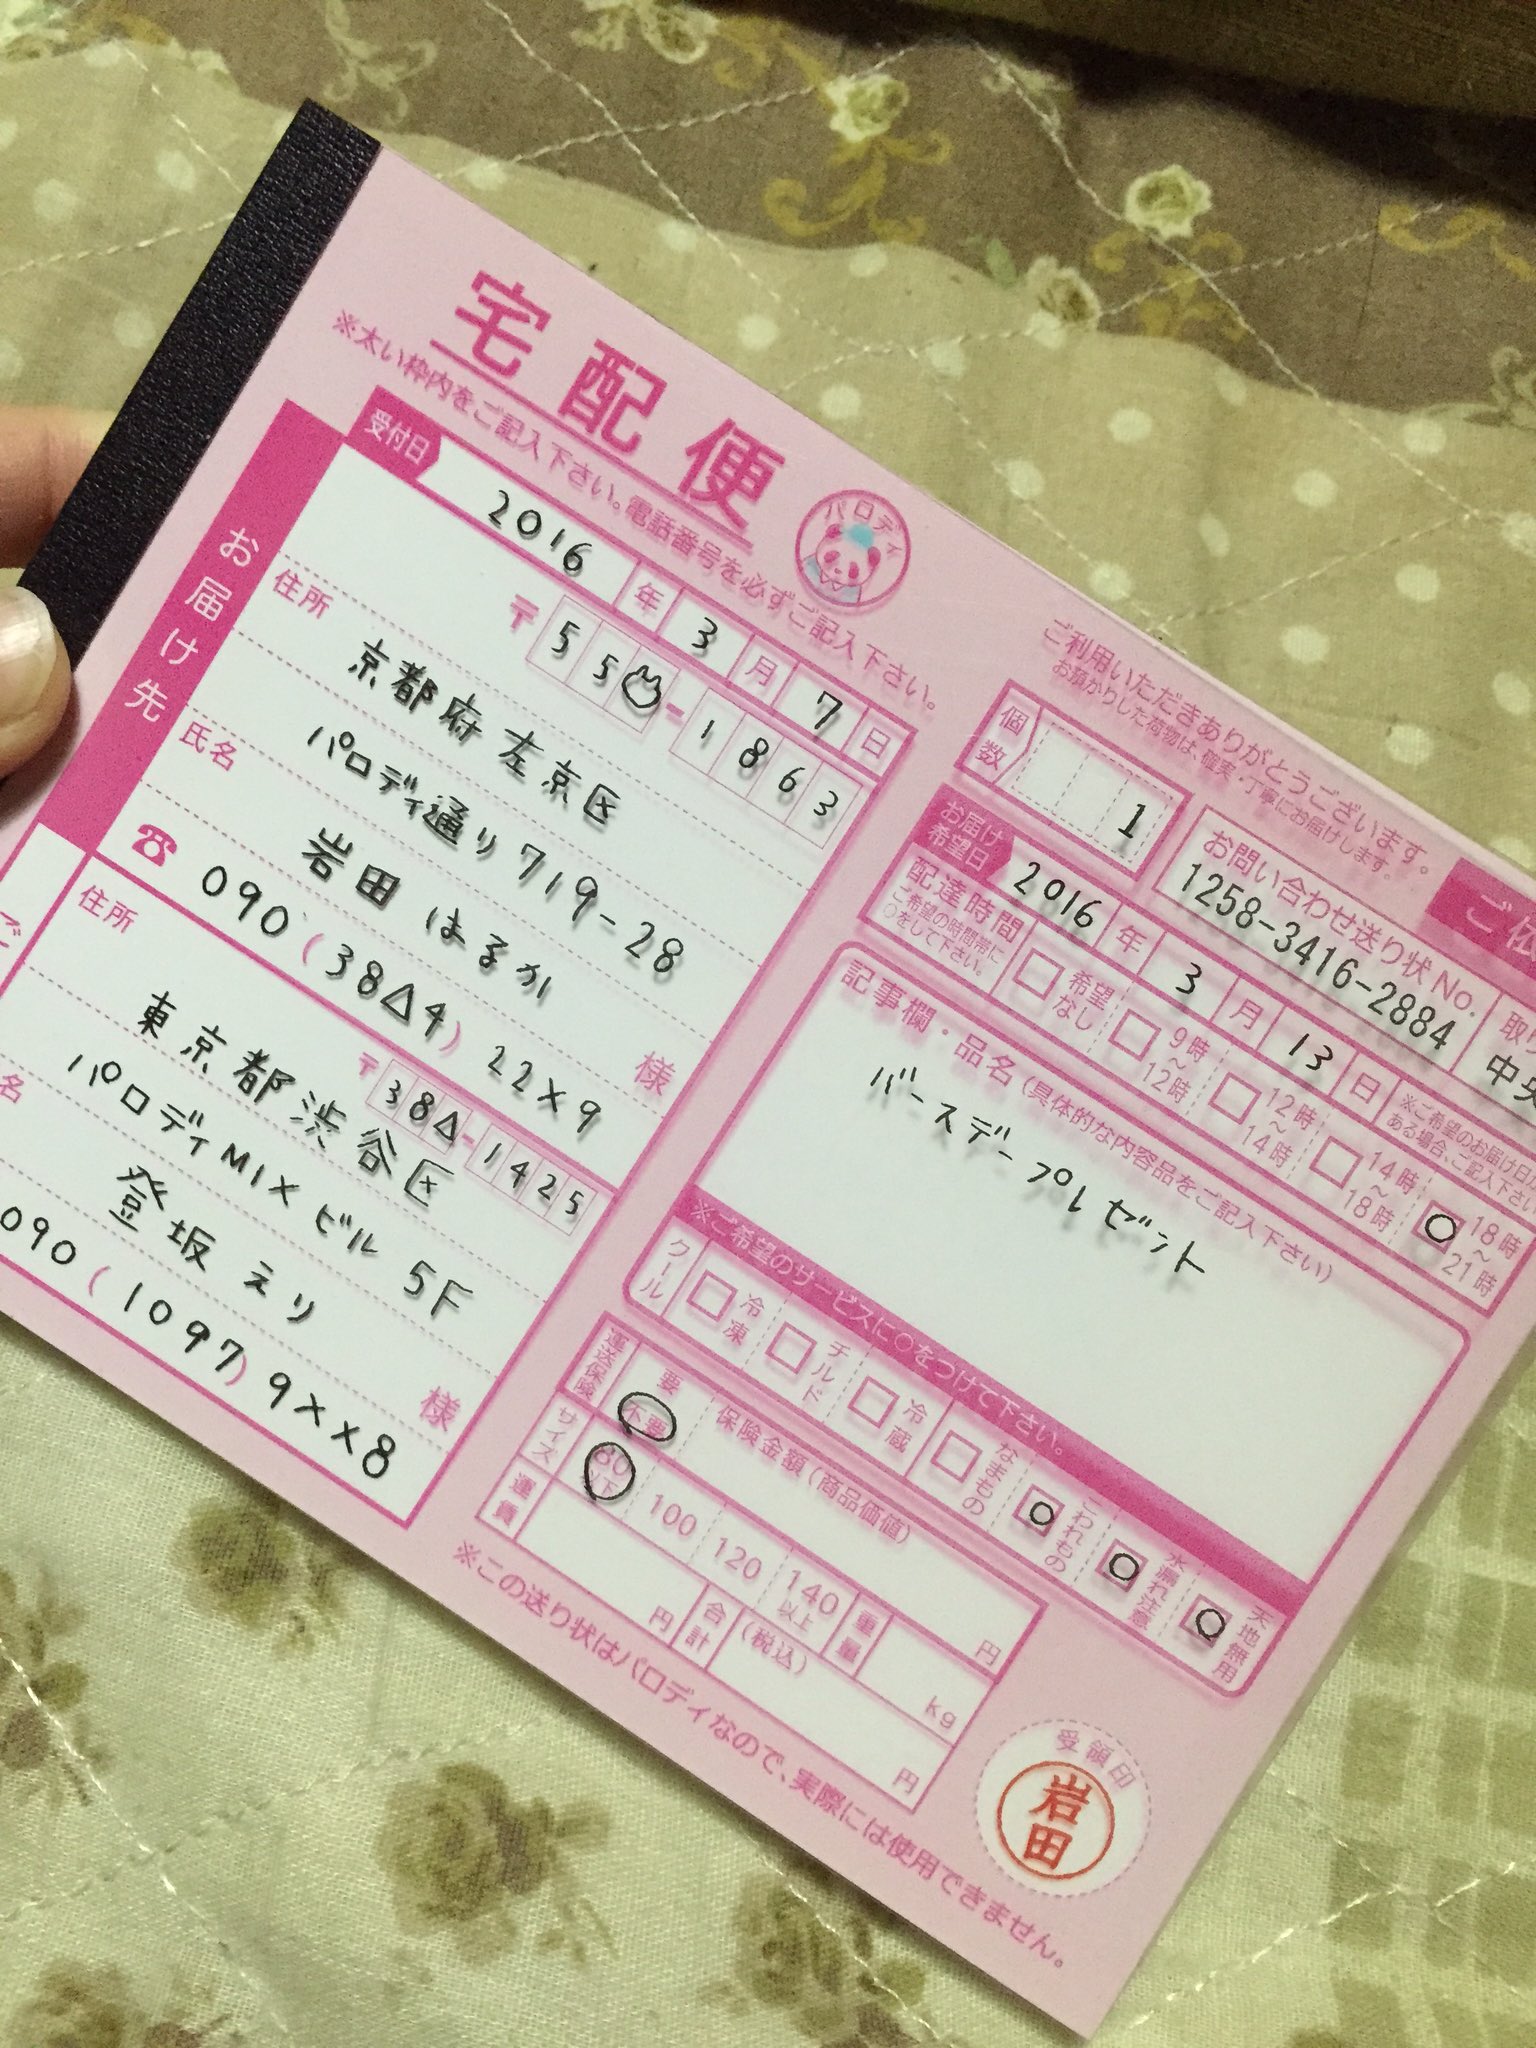 宅配便
※太い枠内をご記入下さい。電話番号を必ずご記入下さい。
パロディ
受付日 2016年3月7日
お届け先
〒55 -1863
住所
京都府左京区
パロディ通り719-28
氏名
岩田 はるか 様
☎ 090(38△4)22×9
〒38△-1425
住所
東京都渋谷区
パロディMIXビル5F
名
登坂えり 様
090(1097)9××8
ご利用いただきありがとうございます。
お預かりした荷物は、確実・丁寧にお届けします。
個数 1
お問い合わせ送り状No.
1258-3416-2884
お届け希望日 2016年3月13日
※ご希望のお届け日
ある場合、ご記入下さい
配達時間
ご希望の時間帯に
○をして下さい。
希望なし
9時~12時
12時~14時
14時~18時
○ 18時~21時
記事欄・品名(具体的な内容品をご記入下さい)
バースデープレゼント
※ご希望のサービスに○をつけて下さい。
クール
冷凍
チルド
冷蔵
なまもの
○ こわれもの
○ 水漏れ注意
○ 天地無用
運送保険
要
不要
保険金額(商品価値)
円
サイズ
80以下
100
120
140以上
重量
kg
運賃
円
合計
(税込)
円
※この送り状はパロディなので、実際には使用できません。
受領印
岩田